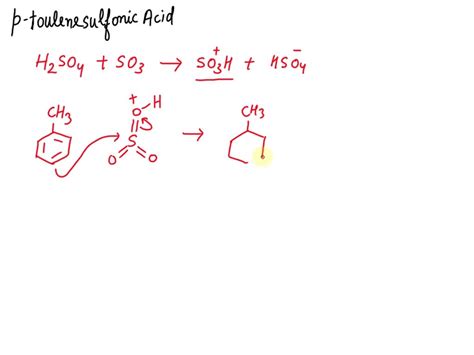 p-toulenesulfonic Acid
H₂SO₄ + SO₃ → SO₃H⁺ + HSO₄⁻
CH₃ + O H S O O → CH₃